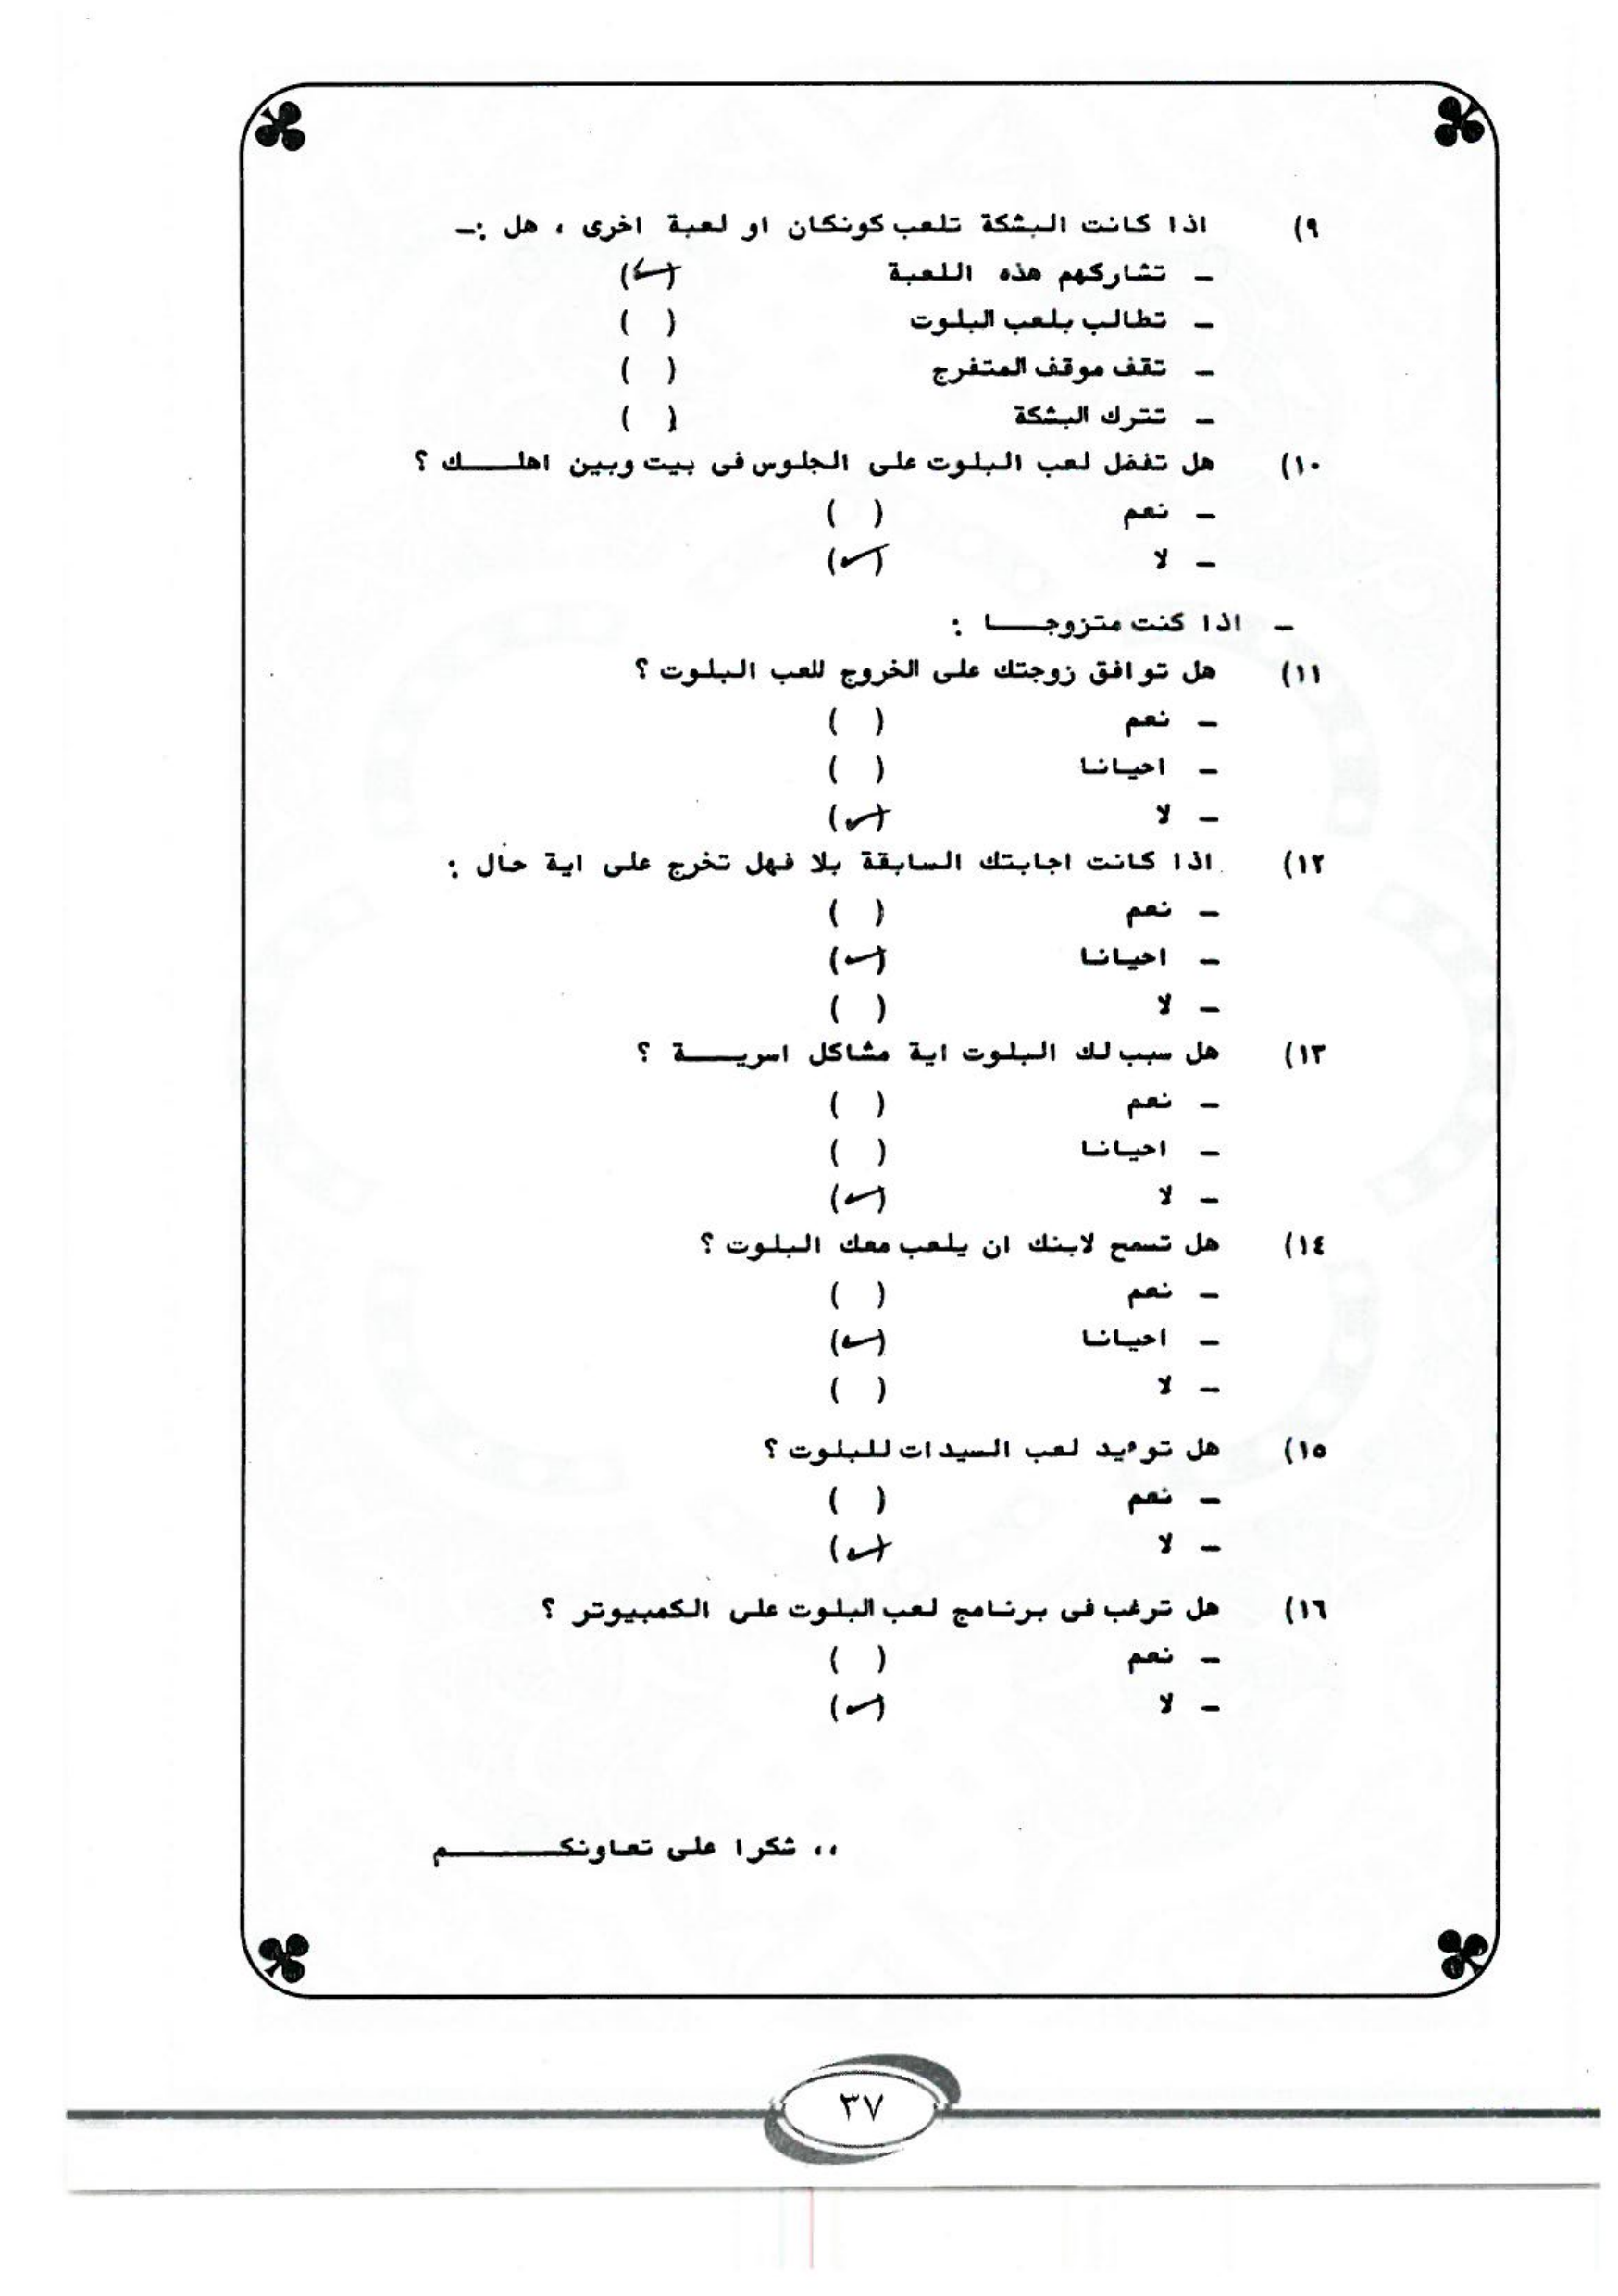 ٩) اذا كانت البشكة تلعب كونكان او لعبة اخرى ، هل :ـ
ـ تشاركهم هذه اللعبة (✓)
ـ تطالب بلعب البلوت ( )
ـ تقف موقف المتفرج ( )
ـ تترك البشكة ( )
١٠) هل تفضل لعب البلوت على الجلوس فى بيت وبين اهلــــك ؟
ـ نعم ( )
ـ لا (✓)
ـ اذا كنت متزوجــــا :
١١) هل توافق زوجتك على الخروج للعب البلوت ؟
ـ نعم ( )
ـ احيانا ( )
ـ لا (✓)
١٢) اذا كانت اجابتك السابقة بلا فهل تخرج على اية حال :
ـ نعم ( )
ـ احيانا (✓)
ـ لا ( )
١٣) هل سبب لك البلوت اية مشاكل اسريــــة ؟
ـ نعم ( )
ـ احيانا ( )
ـ لا (✓)
١٤) هل تسمح لابنك ان يلعب معك البلوت ؟
ـ نعم ( )
ـ احيانا (✓)
ـ لا ( )
١٥) هل توءيد لعب السيدات للبلوت ؟
ـ نعم ( )
ـ لا (✓)
١٦) هل ترغب فى برنامج لعب البلوت على الكمبيوتر ؟
ـ نعم ( )
ـ لا (✓)
،، شكرا على تعاونكــــــم
٣٧